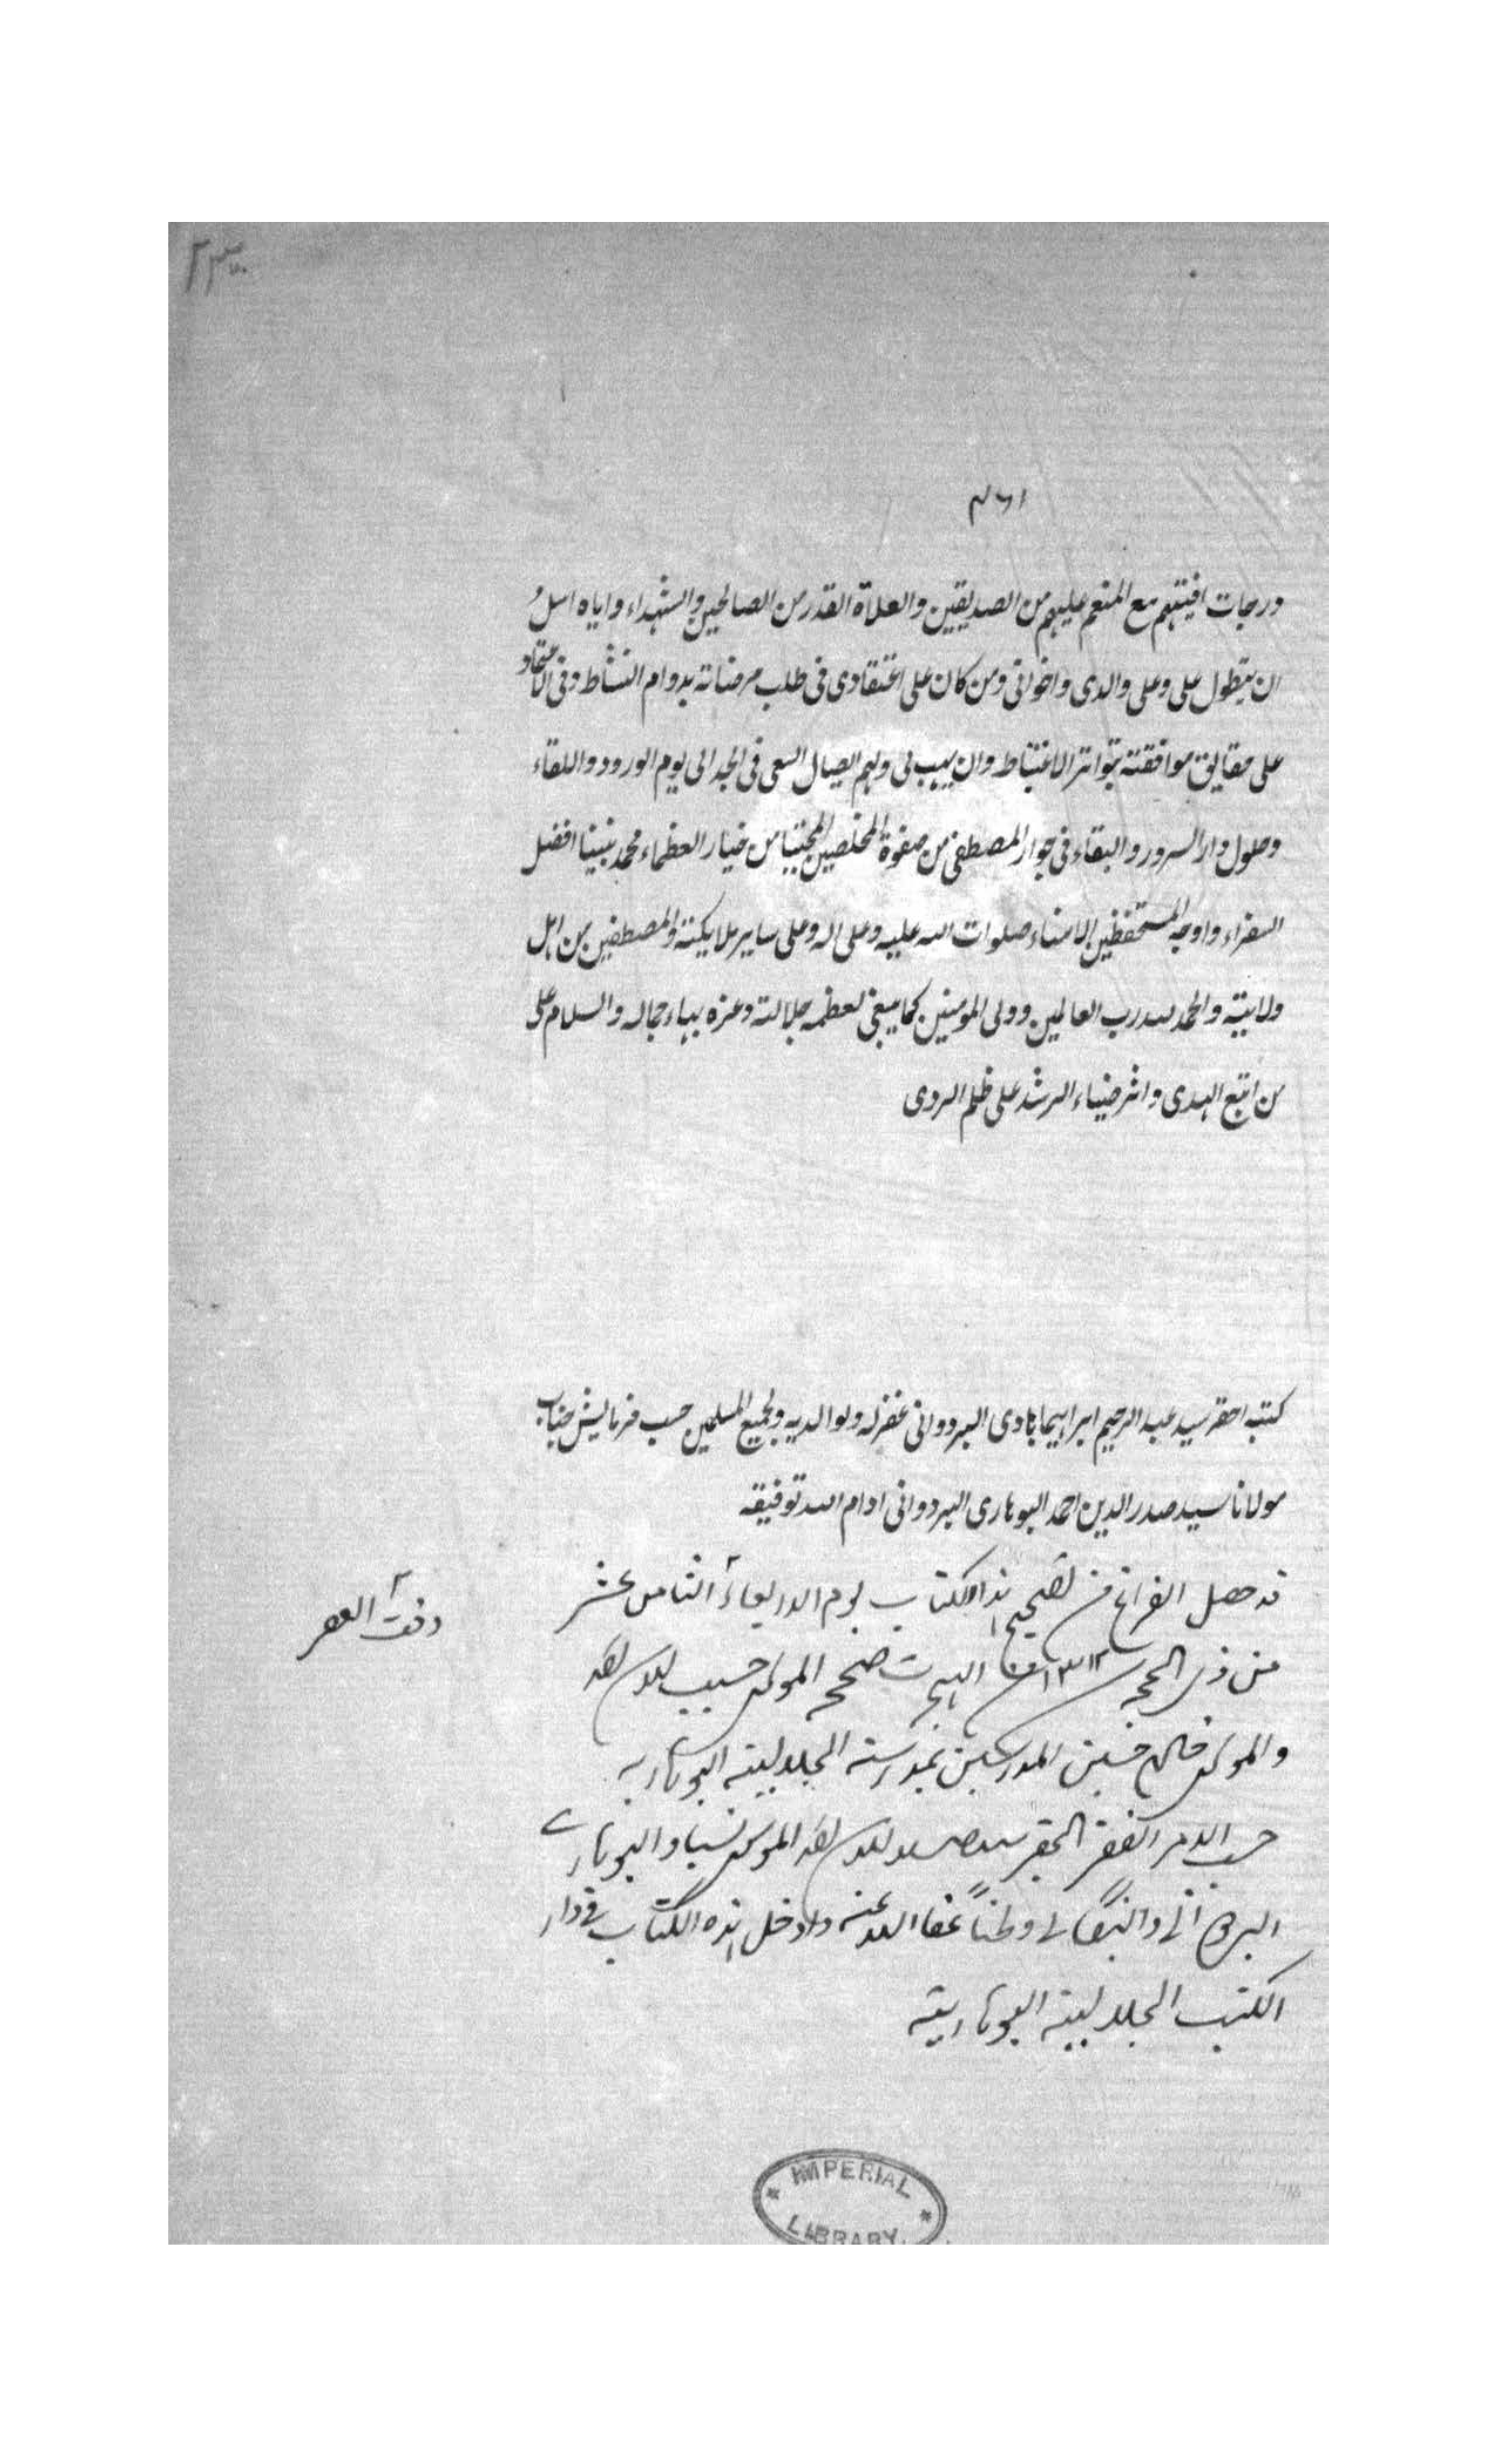 ٢٣٠
٤٦١
ورجات افيتهم مع المنعم عليهم من الصديقين والعلاة القدر من الصالحين والشهداء واياه اسل
ان يتطول على وعلى والدى واخوانى ومن كان على اعتقادى فى طلب مرضاته بدوام النشاط وفى الاعتماد
على موافقته بتواتر الاغتباط وان يهب لى ولهم ايصال السعى فى الجد الى يوم الورود واللقاء
وحلول دار السرور والبقاء فى جوار المصطفى من صفوة المخلصين المجتبا من خيار العظماء محمد نبينا افضل
السفراء واوجه المستحفظين الامناء صلوات الله عليه وعلى اله وعلى ساير ملايكته والمصطفين من اهل
ولايته والحمد لله رب العالمين وولى المومنين كما ينبغى لعظمه جلالته وعزه بهاء جماله والسلام على
من اتبع الهدى واثر ضياء الرشد على ظلم الردى
كتبه احقر سيد عبد الرحيم ابراهيمابادى البردوانى غفر له ولوالديه ولجميع المسلمين حسب فرمايش جناب
مولانا سيد صدر الدين احمد البوهارى البردوانى ادام الله توفيقه
قد حصل الفراغ من تصحيح هذا الكتاب يوم الاربعاء الثامن عشر
وقت العصر
من ذى الحجه ١٣١٢ الهجرت صححه المولوى حسيب
والمولوى خادم حسين المدرسين بمدرسته الجلاليته البوهاريه
حسب الامر الفقير الحقير الموسوى نسبا والبوهارى
البردوانى والبنگالى وطناً عفا الله عنه وادخل هذه الكتاب فى دار
الكتب الجلاليته البوهاريته
IMPERIAL
LIBRARY.